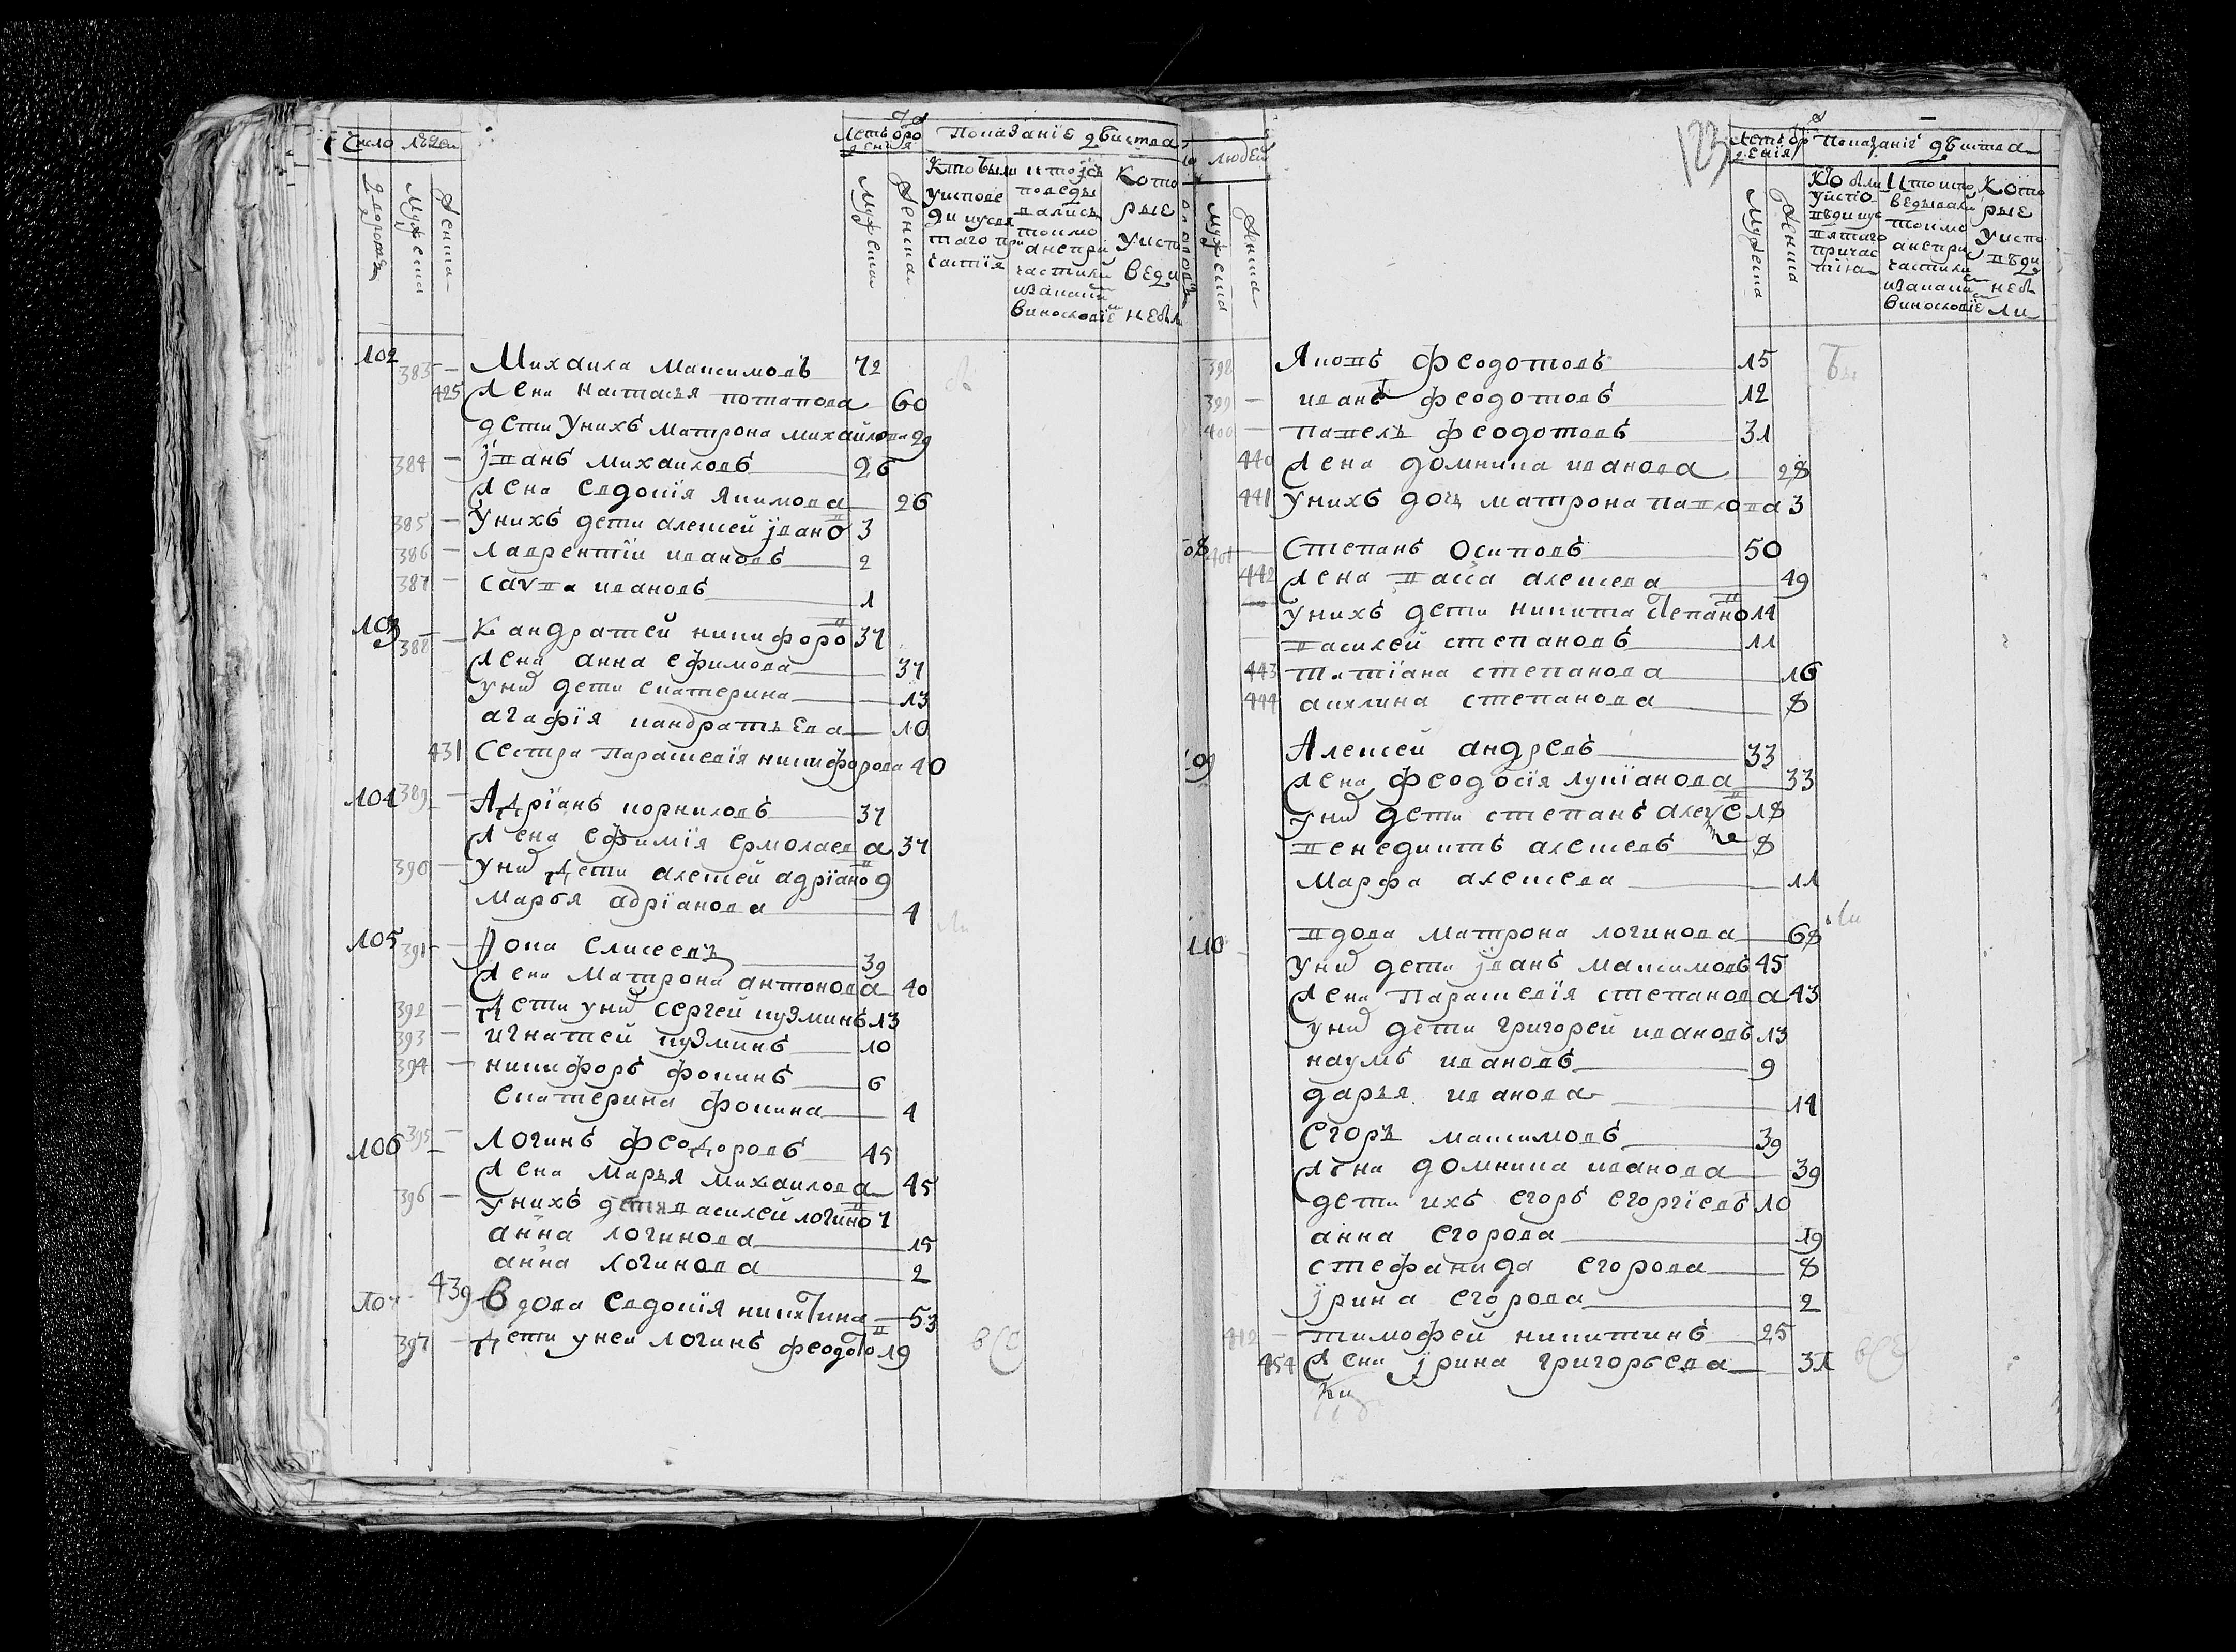 Число людей
Летъ от рождения
Показаніе действа
Дворовъ
Мужеска
Женска
Мужеска
Женска
Кто были у исповеди и у святаго причастія
И то исповедывались токмо а не причастили и за какимъ винословіемъ
Которые у исповеди не были
102 383 — Михаила Максимовъ 72
425 Жена Настасья Потапова 60
дети у нихъ Матрона Михаилова 29
384 — іванъ Михаиловъ 26
Жена Евдокія Якимова 26
385 — У нихъ дети алексей іванов 3
386 — лаврентіи ивановъ 2
387 — савва ивановъ 1
103 388 — Кандратей никифоров 37
Жена анна ефимова 37
у них дети екатерина 13
агафія кандратьева 10
431 Сестра Параскевія никифорова 40
104 389 — Адріанъ корниловъ 37
Жена Ефимія Ермолаева 37
390 — у них дети алексей адріанов 9
Марья адріанова 4
105 391 — Фока Елисеевъ 39
Жена Матрона антонова 40
392 — Дети у них Сергей кузминъ 13
393 — игнатей кузминъ 10
394 — никифоръ фокинъ 6
Екатерина фокина 4
106 395 — Логинъ Феодоровъ 45
Жена Марья Михаилова 45
396 — У нихъ дети василей логинов 7
анна логинова 15
анна логинова 2
107 439 Вдова Евдокія никитина 53
397 — Дети у неи логинъ феодотов 19
все
людей
123
Летъ от рожденія
Показаніе действа
Мужеска
Женска
Мужеска
Женска
Кто были у исповеди и у святаго причастия
И то исповедывали токмо а не причастили и за какимъ винословіе
Которые у исповеди не были
398 Яковъ Феодотовъ 15
399 — иванъ феодотовъ 12
400 — павелъ феодотовъ 31
440 Жена домника иванова 28
441 У нихъ дочь матрона павлова 3
108 401 — Степанъ Осиповъ 50
442 Жена васса алексева 49
У нихъ дети никита степанов 14
василей степановъ 11
443 татіана степанова 16
444 акилина степанова 8
109 Алексей андревъ 33
Жена феодосія лукіанова 33
у них дети степанъ алексеев 18
венедиктъ алексевъ 8
Марфа алексева 11
110 — вдова Матрона логинова 68
у них дети іванъ Максимовъ 45
Жена Параскевія степанова 43
у них дети григорей ивановъ 13
наумъ ивановъ 9
дарья иванова 14
Егоръ максимовъ 39
Жена домника иванова 39
дети ихъ егоръ егоргіевъ 10
анна егорова 19
стефанида егорова 8
ірина егорова 2
412 — тимофей никитинъ 25
454 Жена ірина григорьева 31
все